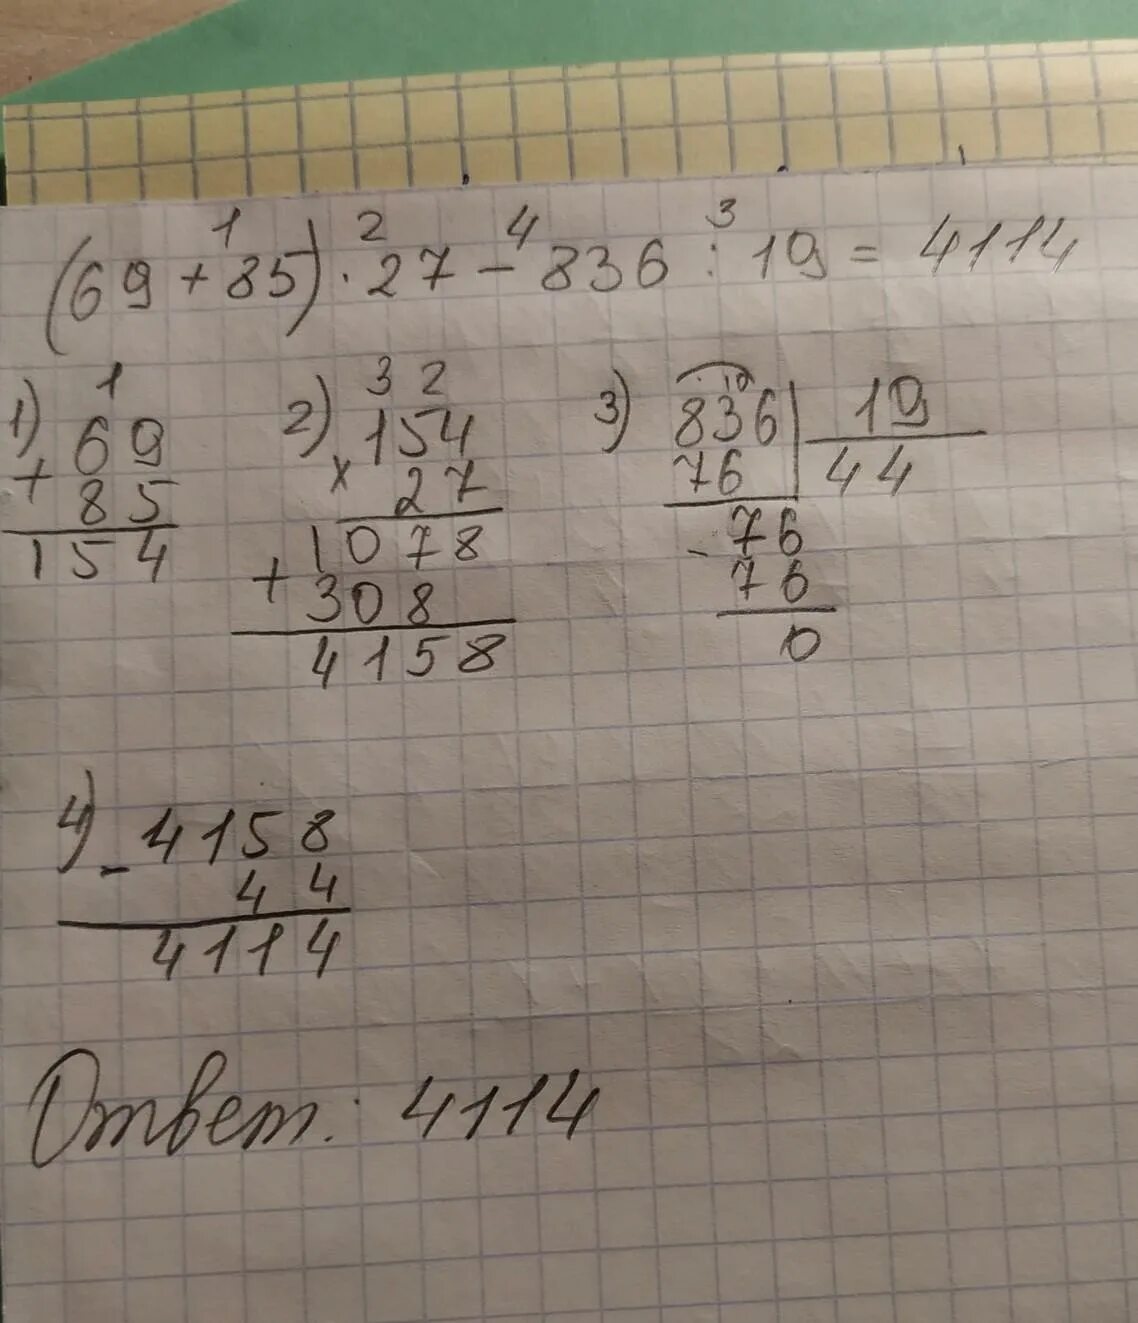 1 2 4 3
(69+85)·27-836:19=4114
1) 1
69
+ 85
154
2) 3 2
154
× 27
1078
+ 308
4158
3) 10
836 19
76 44
- 76
76
0
4) - 4158
44
4114
Ответ: 4114